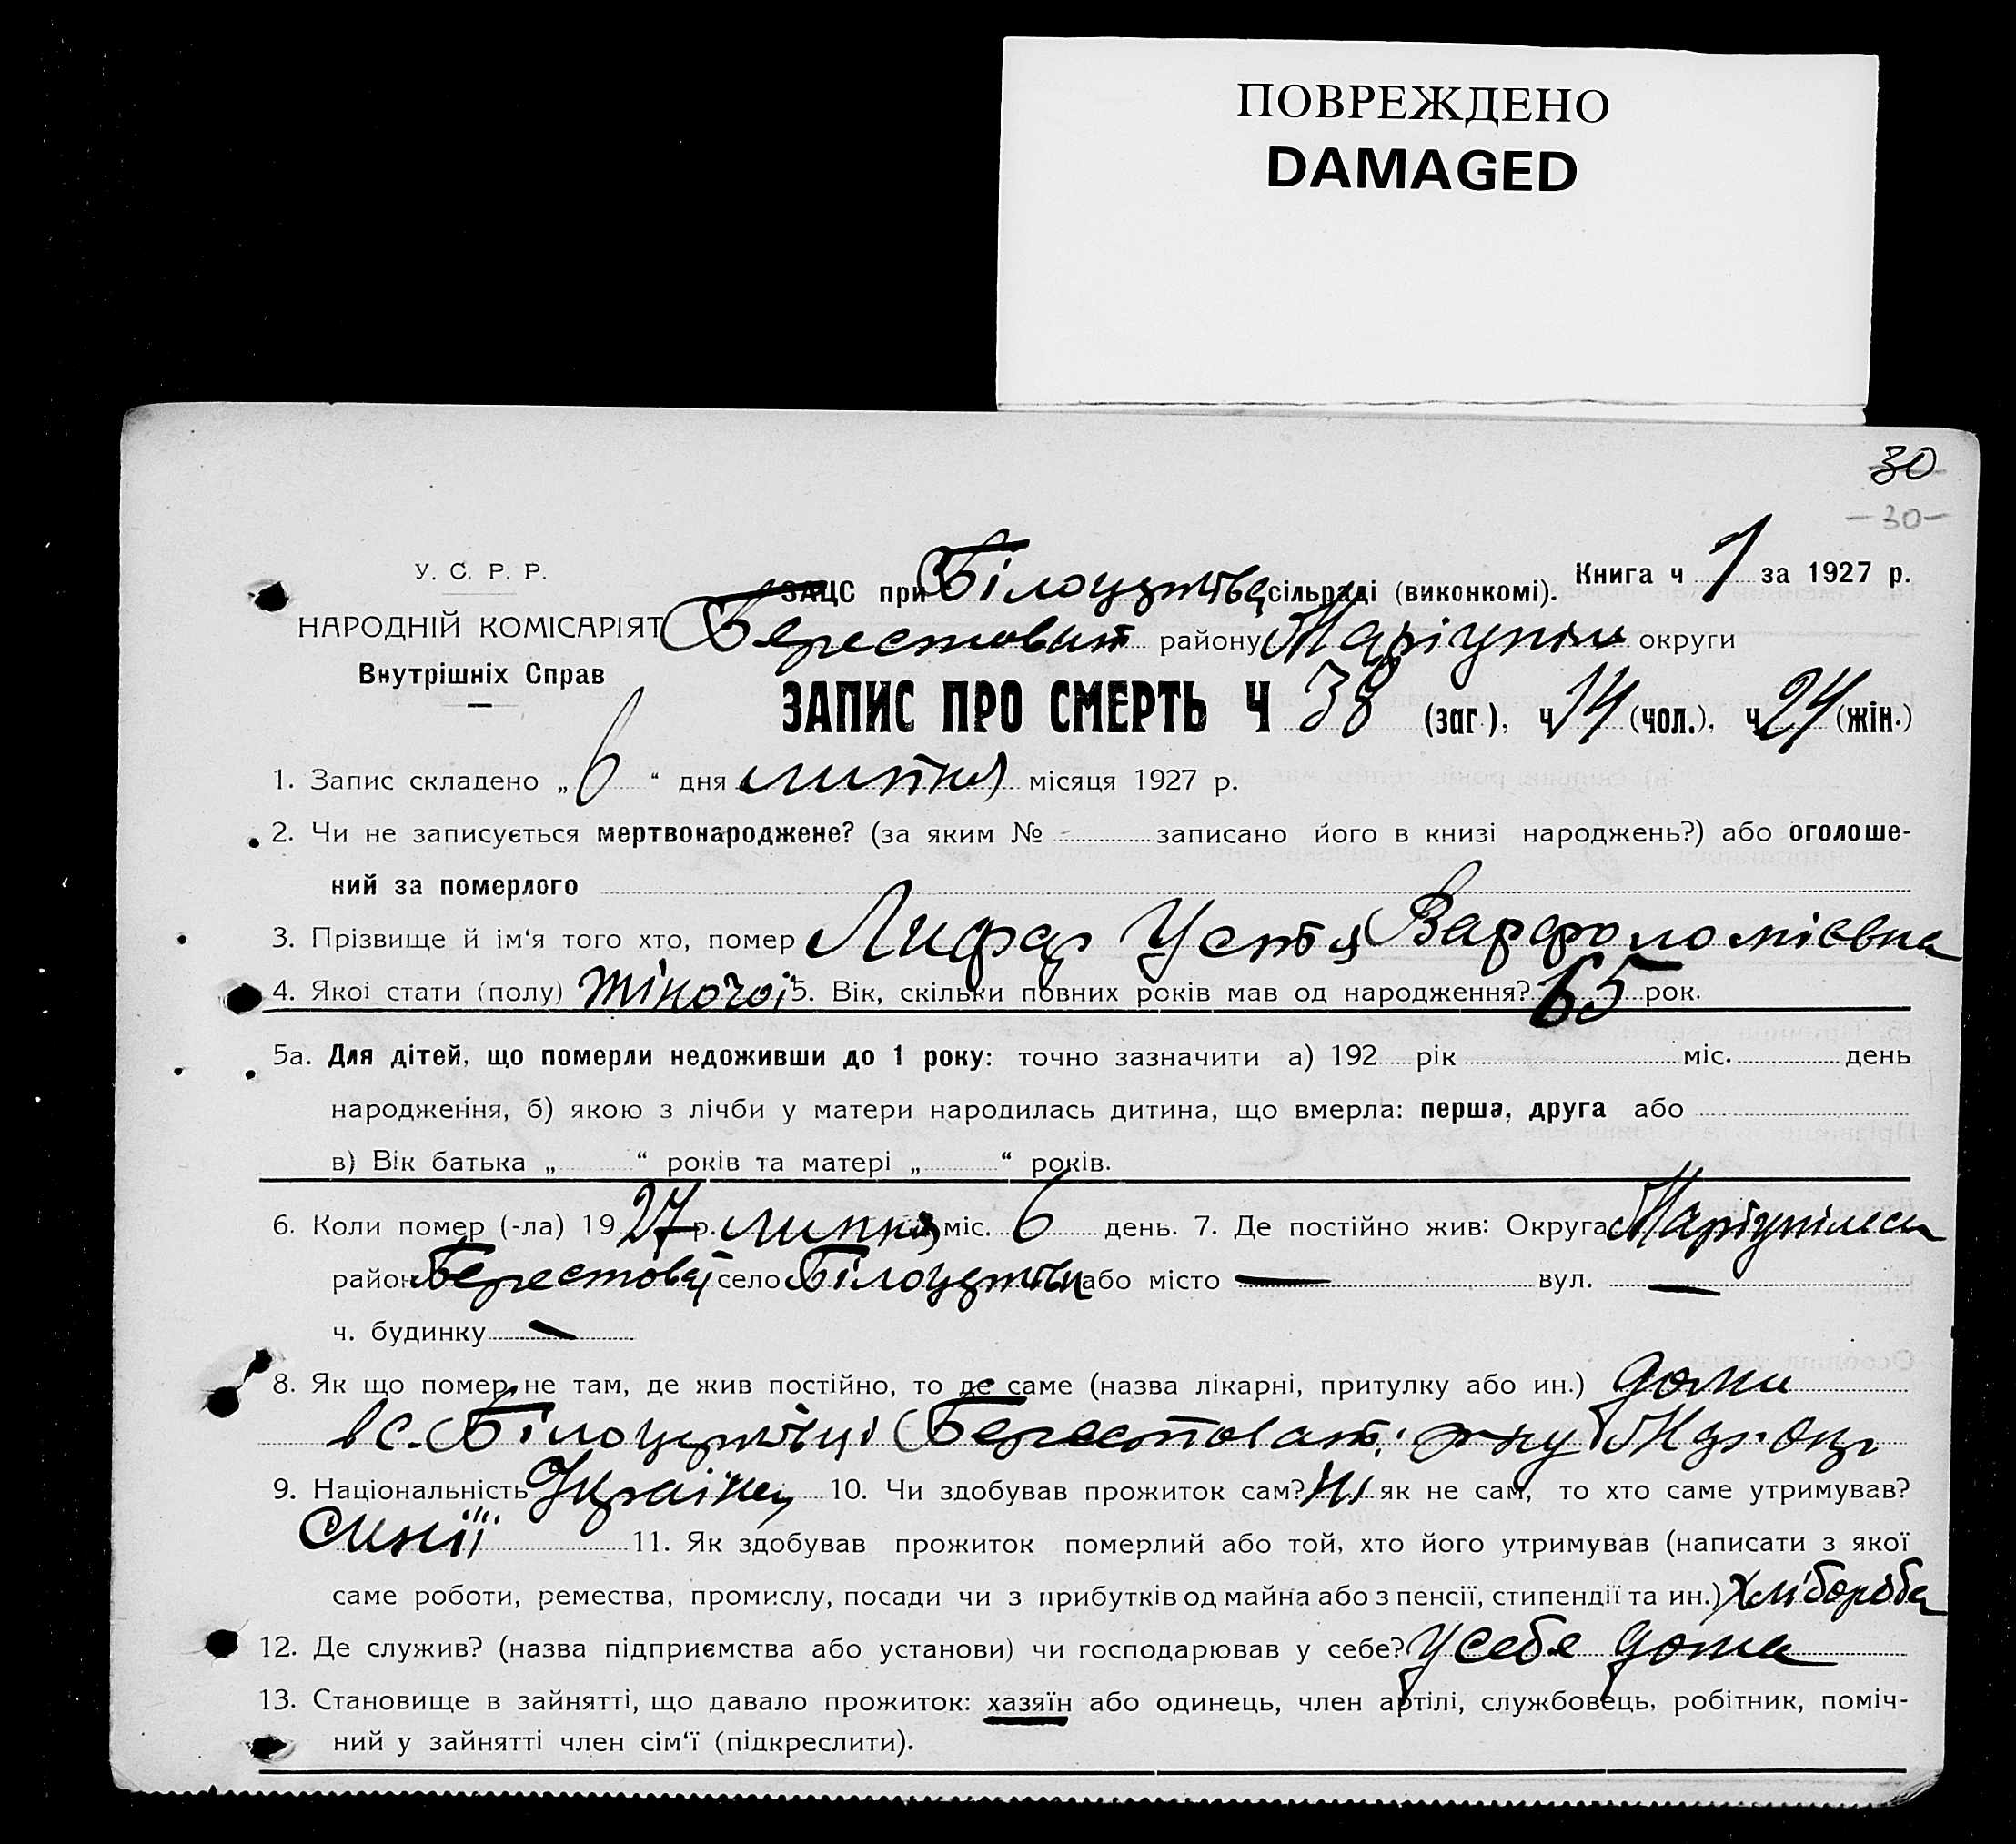 ПОВРЕЖДЕНО
DAMAGED
30
-30-
У. С. Р. Р.
НАРОДНІЙ КОМІСАРІЯТ
Внутрішніх Справ
Книга ч 1 за 1927 р.
ЗАЦС при Білоцерківс сільраді (виконкомі).
Берестоват району Маріупіл округи
ЗАПИС ПРО СМЕРТЬ Ч 38 (заг.), ч 14 (чол.), ч 24 (жін.)
1. Запис складено „6“ дня липня місяця 1927 р.
2. Чи не записується мертвонароджене? (за яким № - записано його в книзі народжень?) або оголоше-
ний за померлого
3. Прізвище й ім'я того хто, помер Лифар Устя Варфоломієвна
4. Якої стати (полу) жіночої 5. Вік, скільки повних років мав од народження? 65 рок.
5а. Для дітей, що померли недоживши до 1 року: точно зазначити а) 192 рік міс. день
народження, б) якою з лічби у матери народилась дитина, що вмерла: перша, друга або
в) Вік батька „ “ років та матері „ “ років.
6. Коли помер (-ла) 1927 р. липня міс. 6 день. 7. Де постійно жив: Округа Маріупільськ
район Берестов село Білоцерківк або місто — вул. —
ч. будинку —
8. Як що помер не там, де жив постійно, то де саме (назва лікарні, притулку або ин.) дома
в с. Білоцерківці Берестоват. р-ну М
9. Національність Українц 10. Чи здобував прожиток сам? Ні як не сам, то хто саме утримував?
Синії 11. Як здобував прожиток померлий або той, хто його утримував (написати з якої
саме роботи, ремества, промислу, посади чи з прибутків од майна або з пенсії, стипендії та ин.) Хлібороба
12. Де служив? (назва підприємства або установи) чи господарював у себе? У себе дома
13. Становище в зайнятті, що давало прожиток: хазяїн або одинець, член артілі, службовець, робітник, поміч-
ний у зайнятті член сім'ї (підкреслити).